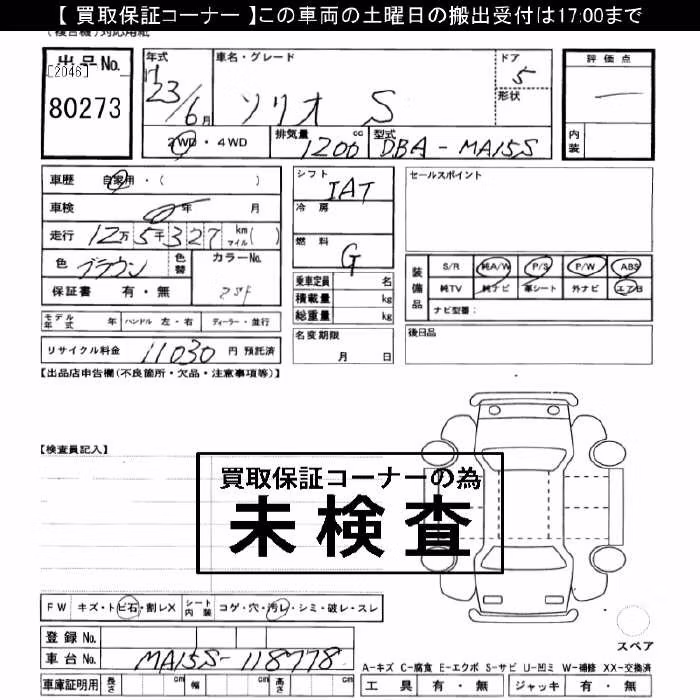 【 買取保証コーナー 】この車両の土曜日の搬出受付は17:00まで
(複合機)対応用紙
出品No.
[2046]
80273
年式
車名・グレード
ドア
評価点
23/6月
ソリオ S
5
形状
―
2WD・4WD
排気量
1200 cc
型式
DBA-MA15S
内装
車歴 自家用・( )
シフト
IAT
セールスポイント
車検 0年 月
冷房
走行 12万5千327 km マイル( )
燃料
G
色 ブラウン
色替
カラーNo.
ZSF
装備品
S/R 純A/W P/S P/W ABS
純TV 純ナビ 革シート 外ナビ エアB
ナビ型番:
保証書 有・無
乗車定員 名
積載量 kg
総重量 kg
モデル年式 年 ハンドル 左・右 ディーラー・並行
名変期限
月 日
後日品
リサイクル料金 11030 円 預託済
【出品店申告欄(不良箇所・欠品・注意事項等)】
【検査員記入】
買取保証コーナーの為
未検査
FW キズ・トビ石・割レX シート内装 コゲ・穴・汚レ・シミ・破レ・スレ
登録No.
車台No. MA15S-118778
スペア
A-キズ C-腐食 E-エクボ S-サビ U-凹ミ W-補修 XX-交換済
車庫証明用 長さ cm 幅 cm 高さ cm
工具 有・無 ジャッキ 有・無